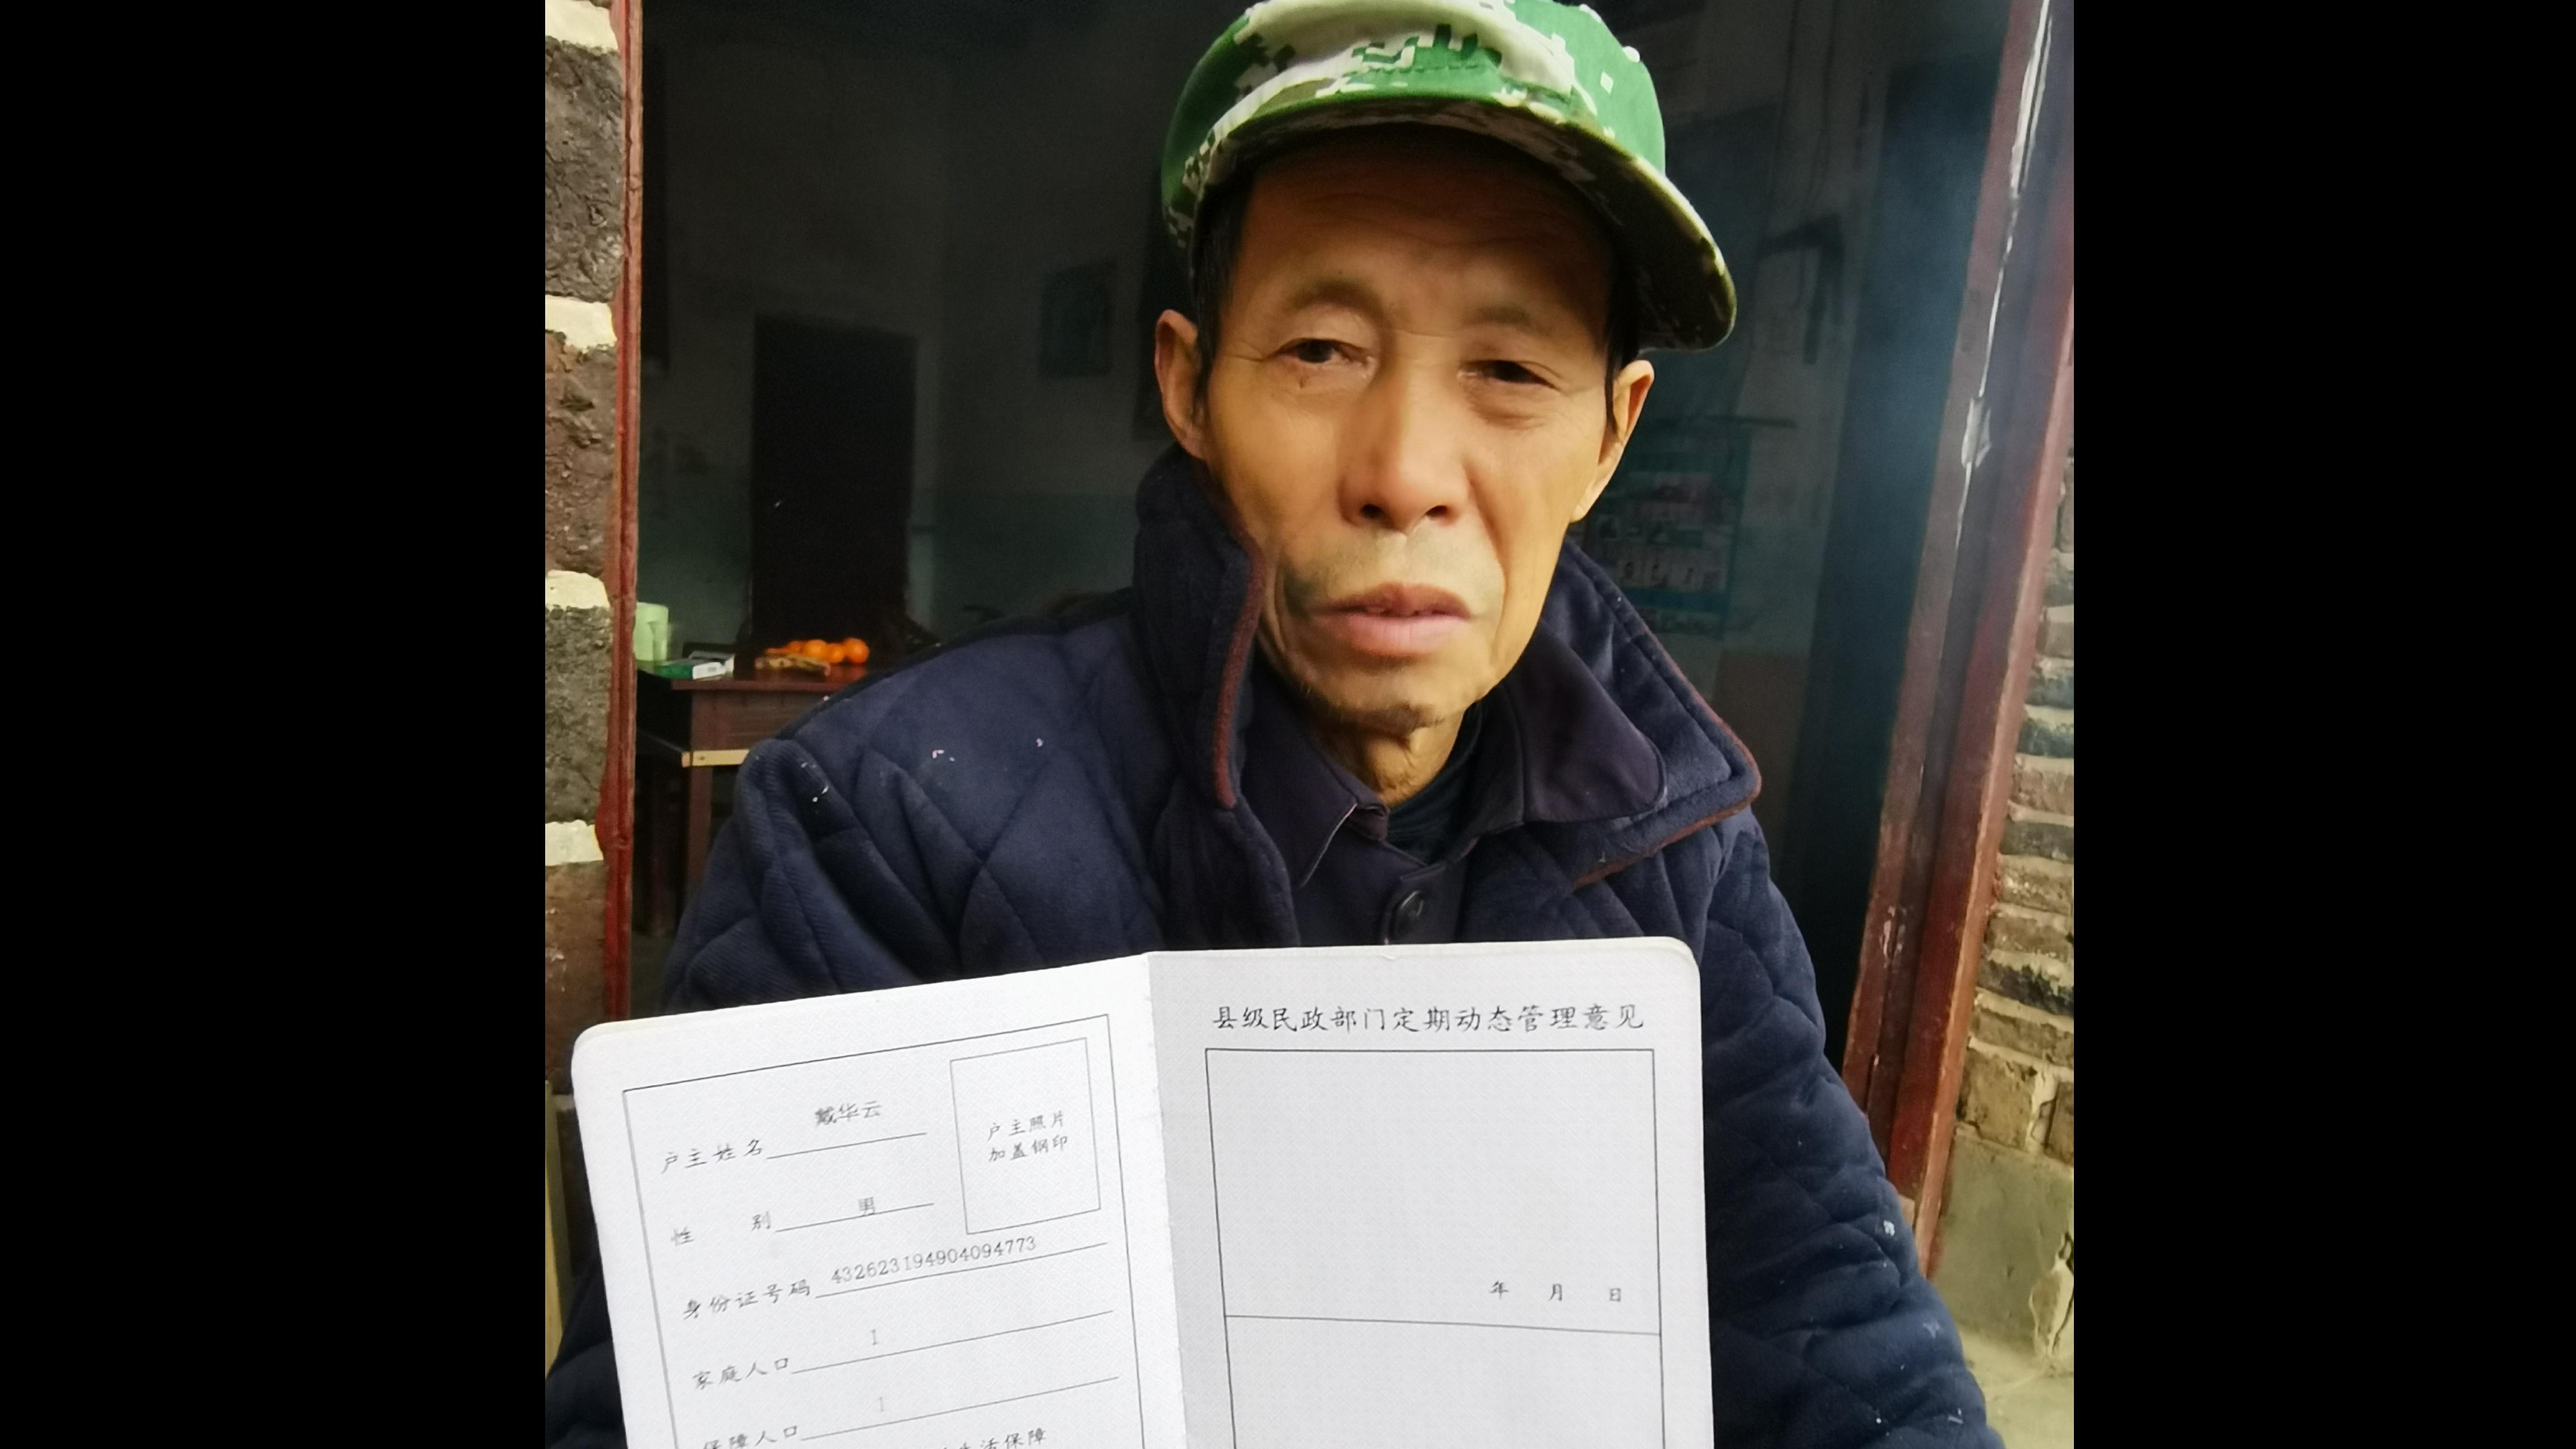 戴华云
户主姓名
户主照片
加盖钢印
性 别 男
身份证号码 432623194904094773
家庭人口 1
保障人口 1
生活保障
县级民政部门定期动态管理意见
年 月 日